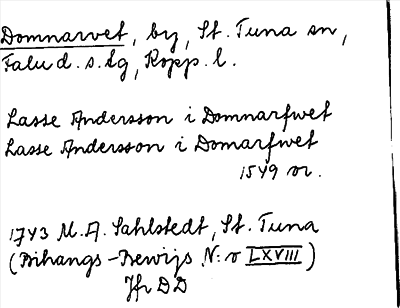 Domnarvet, by, St. Tuna sn,
Falu d. s. lg, Kopp. l.
Lasse Andersson i Domnarfwet
Lasse Andersson i Domarfwet
1549 or.
1743 M. A. Sahlstedt, St. Tuna
(Bihangs-Bewijs N:o LXVIII)
Jfr DD